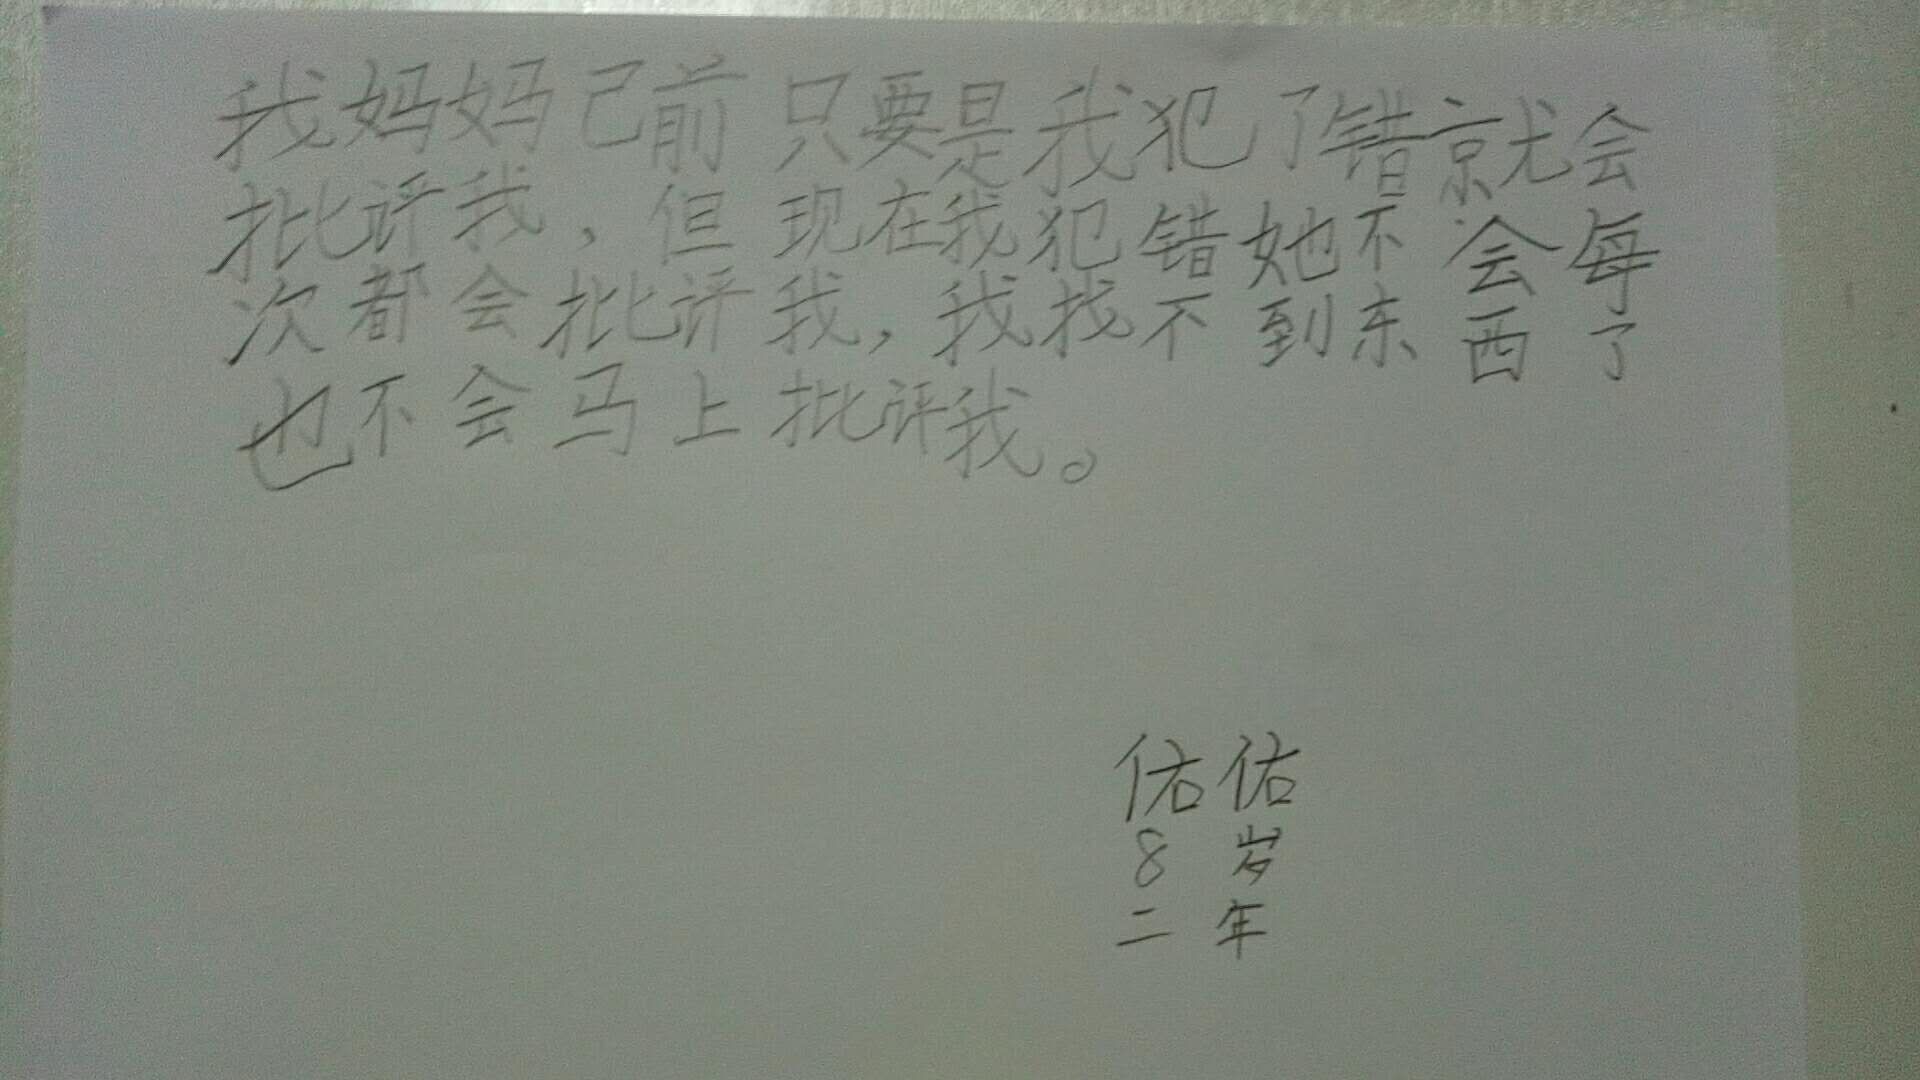 我妈妈己前只要是我犯了错就会
批评我，但现在我犯错她不会每
次都会批评我，我找不到东西了
也不会马上批评我。
佑佑
8岁
二年